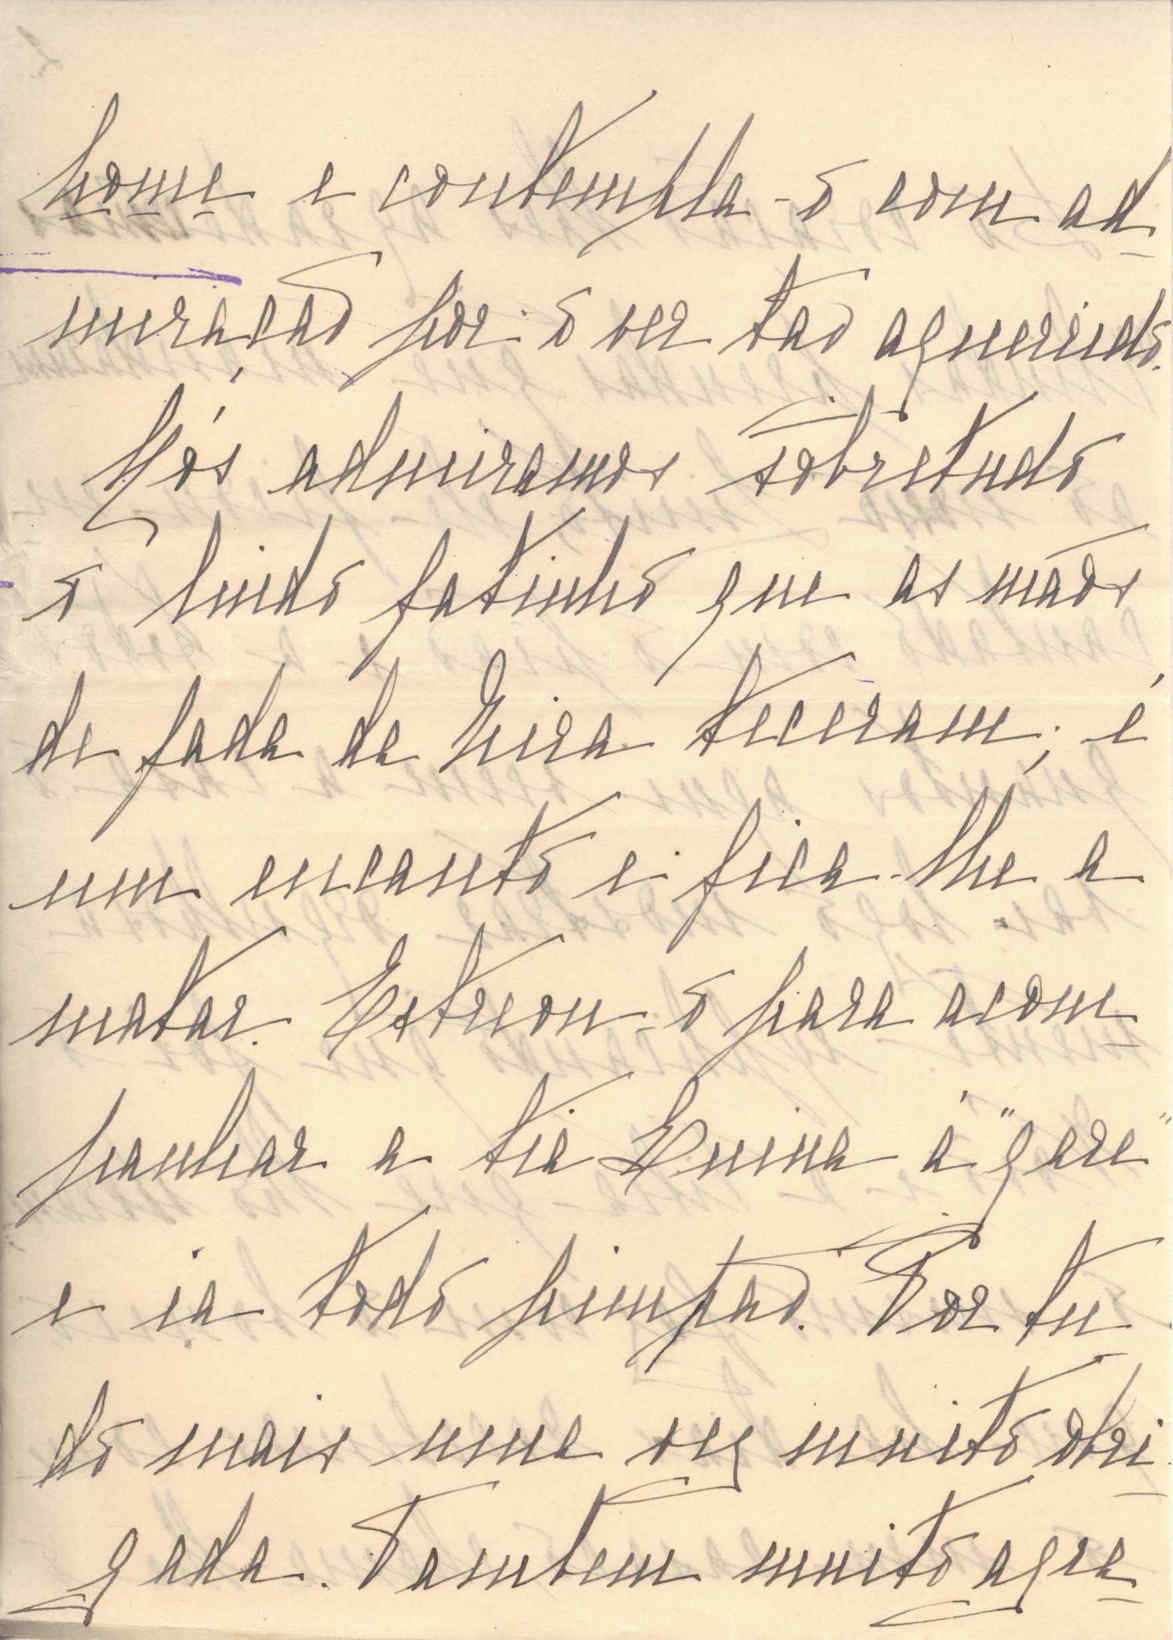 home e contempla-o com ad-
miração por o ver tão aguerrido.
Nós admiramos sobretudo
o lindo fatinho que as mãos
de fada da Mira teceram; é
um encanto e fica-lhe a
matar. Estreou-o para acom-
panhar a tia Enina á "gare"
e ia todo pimpão. Por tu
do mais uma vez muito obri-
gada. Tambem muito agra-